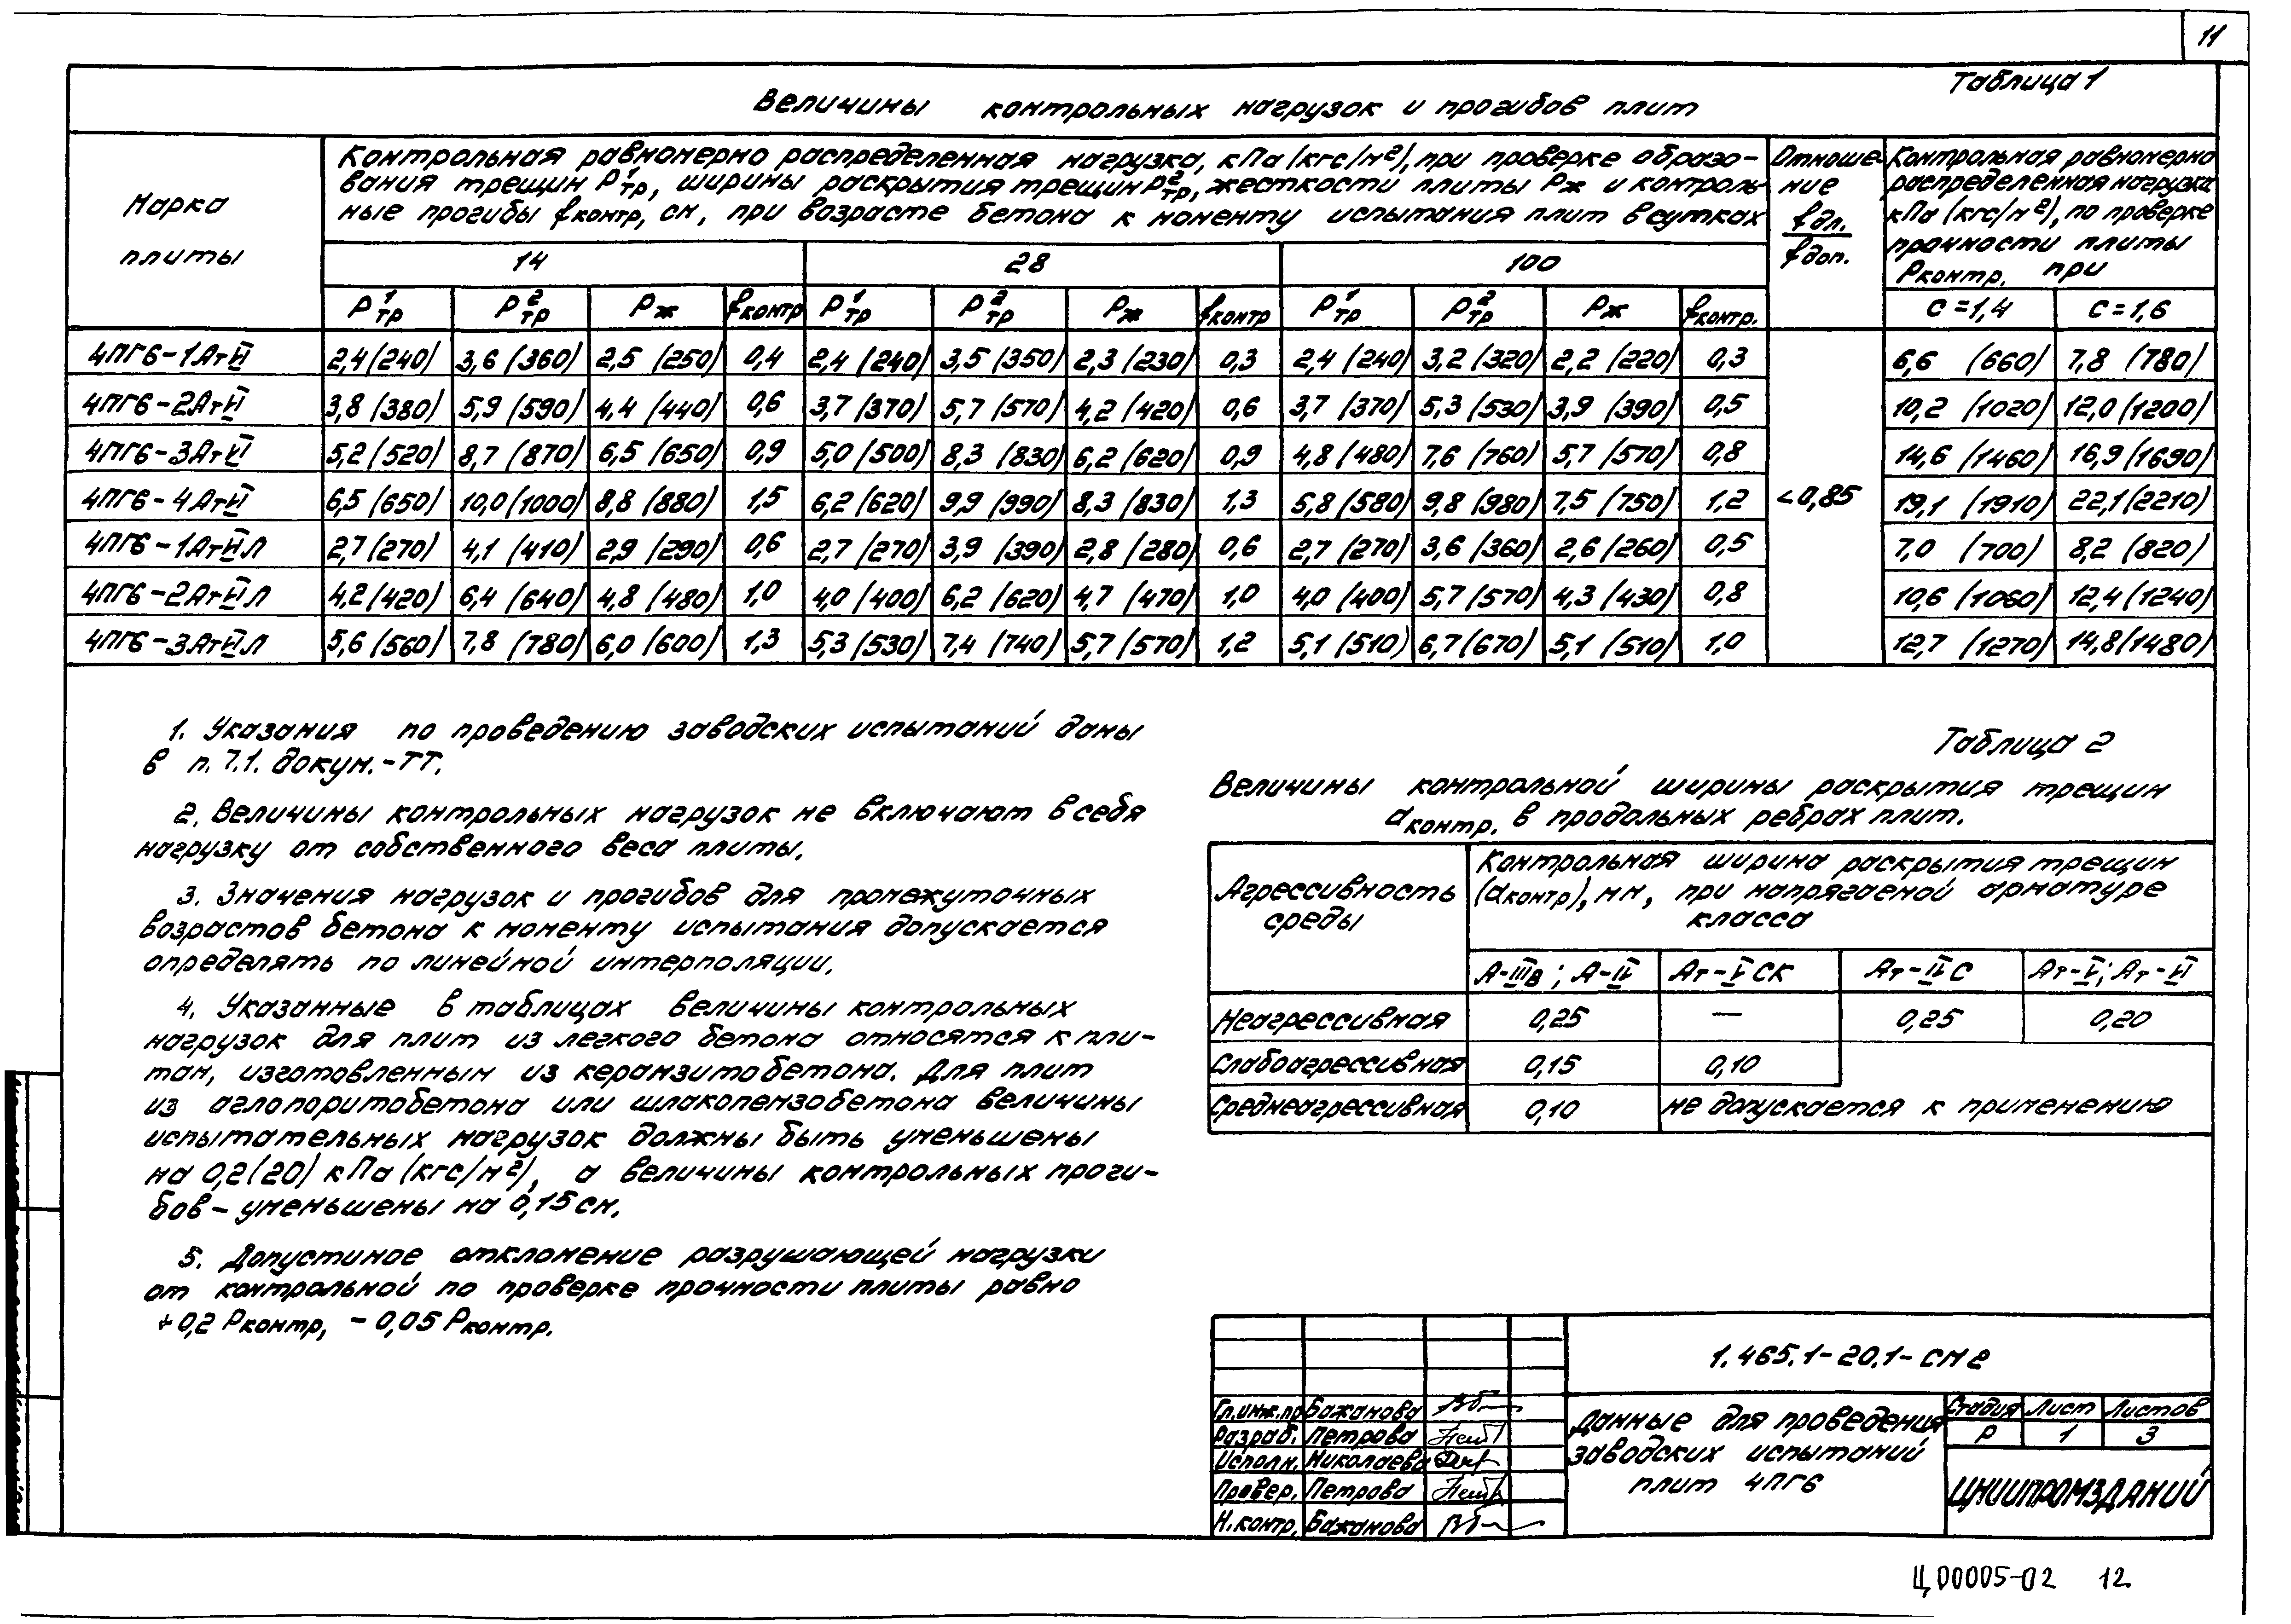 11
Таблица 1
Величины контрольных нагрузок и прогибов плит
Марка плиты
Контрольная равномерно распределенная нагрузка, кПа (кгс/м²), при проверке образо-
вания трещин P¹тр, ширины раскрытия трещин P²тр, жесткости плиты Pж и контроль-
ные прогибы fконтр, см, при возрасте бетона к моменту испытания плит в сутках
Отноше-
ние
fдл.
fдоп.
Контрольная равномерно
распределенная нагрузка
кПа (кгс/м²), по проверке
прочности плиты
Pконтр. при
14 28 100
P¹тр P²тр Pж fконтр P¹тр P²тр Pж fконтр P¹тр P²тр Pж fконтр. С=1,4 С=1,6
4ПГ6-1АтVI 2,4(240) 3,6(360) 2,5(250) 0,4 2,4(240) 3,5(350) 2,3(230) 0,3 2,4(240) 3,2(320) 2,2(220) 0,3 6,6 (660) 7,8 (780)
4ПГ6-2АтVI 3,8(380) 5,9(590) 4,4(440) 0,6 3,7(370) 5,7(570) 4,2(420) 0,6 3,7(370) 5,3(530) 3,9(390) 0,5 10,2 (1020) 12,0(1200)
4ПГ6-3АтVI 5,2(520) 8,7(870) 6,5(650) 0,9 5,0(500) 8,3(830) 6,2(620) 0,9 4,8(480) 7,6(760) 5,7(570) 0,8 14,6 (1460) 16,9(1690)
4ПГ6-4АтVI 6,5(650) 10,0(1000) 8,8(880) 1,5 6,2(620) 9,9(990) 8,3(830) 1,3 5,8(580) 9,8(980) 7,5(750) 1,2 <0,85 19,1 (1910) 22,1(2210)
4ПГ6-1АтVIЛ 2,7(270) 4,1(410) 2,9(290) 0,6 2,7(270) 3,9(390) 2,8(280) 0,6 2,7(270) 3,6(360) 2,6(260) 0,5 7,0 (700) 8,2 (820)
4ПГ6-2АтVIЛ 4,2(420) 6,4(640) 4,8(480) 1,0 4,0(400) 6,2(620) 4,7(470) 1,0 4,0(400) 5,7(570) 4,3(430) 0,8 10,6 (1060) 12,4(1240)
4ПГ6-3АтVIЛ 5,6(560) 7,8(780) 6,0(600) 1,3 5,3(530) 7,4(740) 5,7(570) 1,2 5,1(510) 6,7(670) 5,1(510) 1,0 12,7 (1270) 14,8(1480)
1. Указания по проведению заводских испытаний даны
в п. 7.1. докум.-ТТ.
2. Величины контрольных нагрузок не включают в себя
нагрузку от собственного веса плиты.
3. Значения нагрузок и прогибов для промежуточных
возрастов бетона к моменту испытания допускается
определять по линейной интерполяции.
4. Указанные в таблицах величины контрольных
нагрузок для плит из легкого бетона относятся к пли-
там, изготовленным из керамзитобетона. Для плит
из аглопоритобетона или шлакопемзобетона величины
испытательных нагрузок должны быть уменьшены
на 0,2(20) кПа (кгс/м²), а величины контрольных проги-
бов - уменьшены на 0,15 см.
5. Допустимое отклонение разрушающей нагрузки
от контрольной по проверке прочности плиты равно
+0,2 Pконтр, -0,05 Pконтр.
Таблица 2
Величины контрольной ширины раскрытия трещин
aконтр. в продольных ребрах плит.
Агрессивность
среды
Контрольная ширина раскрытия трещин
(aконтр), мм, при напрягаемой арматуре
класса
А-IIIв; А-IV Ат-VСК Ат-IVС Ат-V; Ат-VI
Неагрессивная 0,25 — 0,25 0,20
Слабоагрессивная 0,15 0,10
Среднеагрессивная 0,10 не допускается к применению
1.465.1-20.1-СМ2
Гл.инж.пр Бажанова
Разраб. Петрова
Исполн. Николаева
Провер. Петрова
Н.контр. Бажанова
Данные для проведения
заводских испытаний
плит 4ПГ6
Стадия Лист Листов
Р 1 3
ЦНИИПРОМЗДАНИЙ
Ц00005-02 12